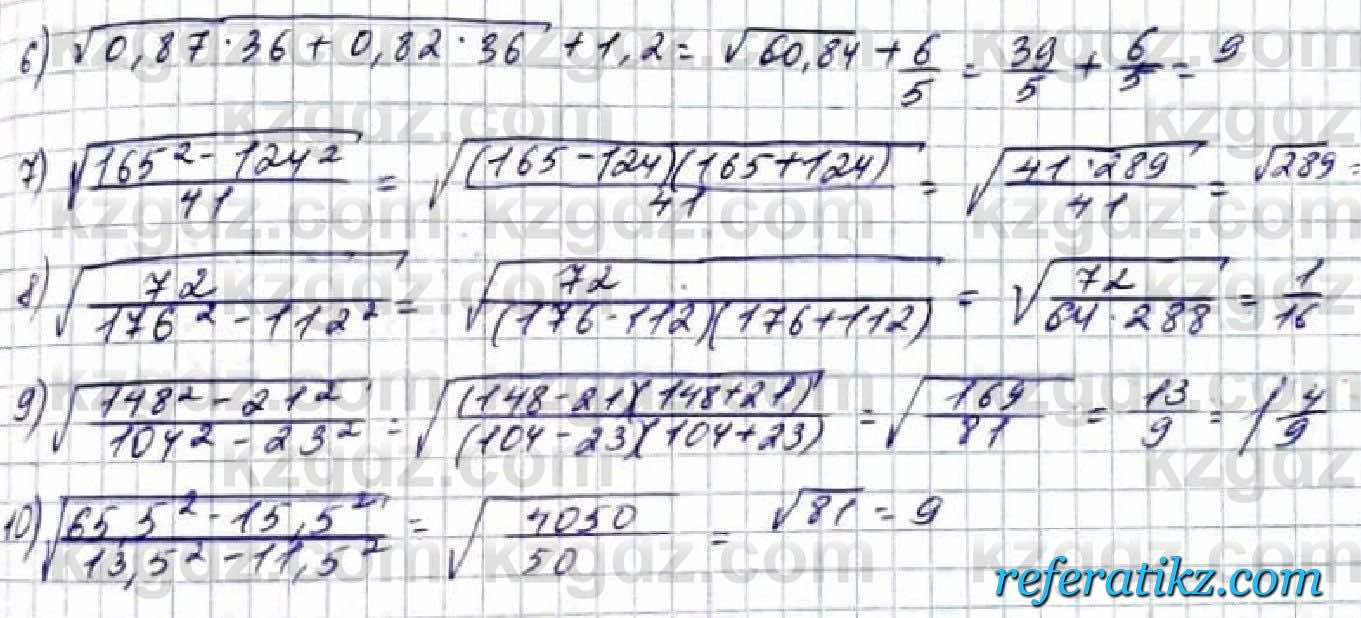 6) √(0,87·36+0,82·36) + 1,2 = √60,84 + 6/5 = 39/5 + 6/5 = 9
7) √((165² - 124²)/41) = √((165-124)(165+124)/41) = √(41·289/41) = √289 =
8) √(72/(176² - 112²)) = √(72/((176-112)(176+112))) = √(72/(64·288)) = 1/16
9) √((148² - 21²)/(104² - 23²)) = √((148-21)(148+21)/((104-23)(104+23))) = √(169/81) = 13/9 = 1 4/9
10) √((65,5² - 15,5²)/(13,5² - 11,5²)) = √(4050/50) = √81 = 9
kzgdz.com
referatikz.com